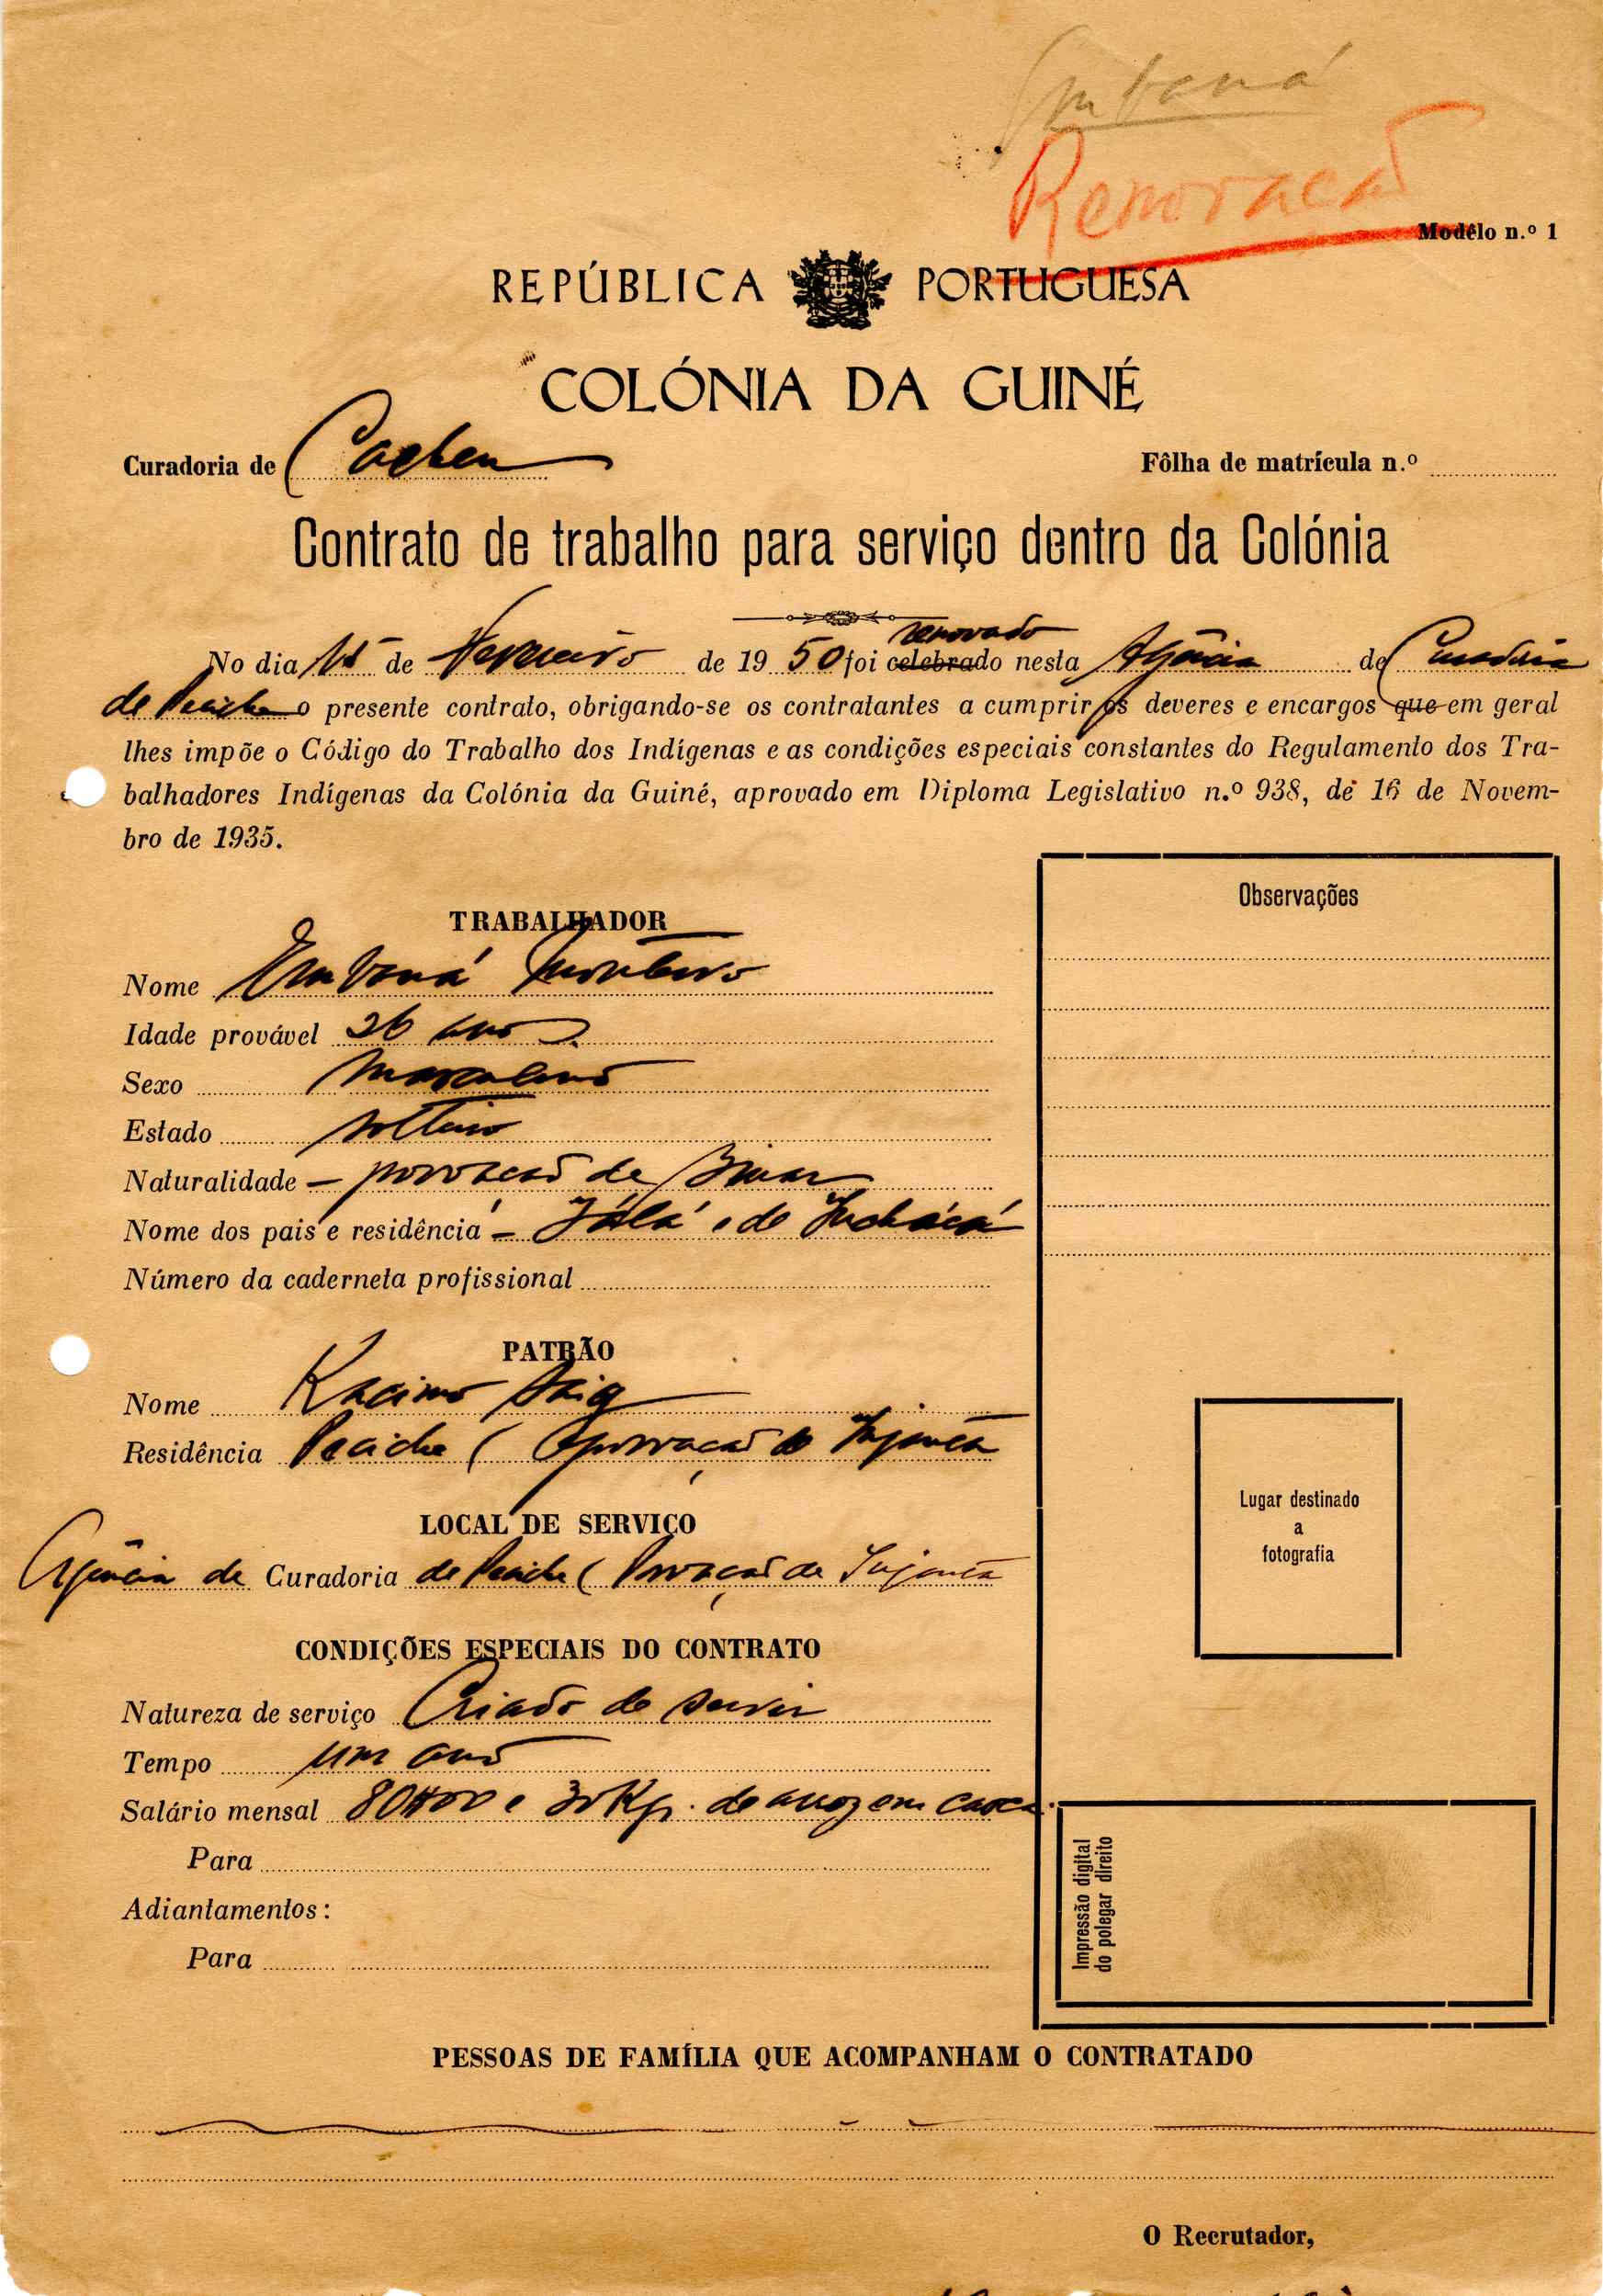 Embaná
Renovação
Modêlo n.º 1
REPÚBLICA PORTUGUESA
COLÓNIA DA GUINÉ
Curadoria de Cacheu
Fôlha de matrícula n.º
Contrato de trabalho para serviço dentro da Colónia
renovado
No dia de Fevereiro de 19 50 foi celebrado nesta Agência de Curadoria
de Pecixe o presente contrato, obrigando-se os contratantes a cumprir os deveres e encargos que em geral
lhes impõe o Código do Trabalho dos Indígenas e as condições especiais constantes do Regulamento dos Tra-
balhadores Indígenas da Colónia da Guiné, aprovado em Diploma Legislativo n.º 938, de 16 de Novem-
bro de 1935.
Observações
TRABALHADOR
Nome Embaná Monteiro
Idade provável 26 anos
Sexo Masculino
Estado solteiro
Naturalidade – povoação de
Nome dos pais e residência – e de
Número da caderneta profissional
PATRÃO
Nome
Residência Pecixe (povoação de
Lugar destinado
a
fotografia
LOCAL DE SERVIÇO
Agência de Curadoria de Pecixe (Povoação de
CONDIÇÕES ESPECIAIS DO CONTRATO
Natureza de serviço Criado de servir
Tempo um ano
Salário mensal 80$00 e 30 Kg. de arroz em casca.
Para
Adiantamentos:
Para
Impressão digital
do polegar direito
PESSOAS DE FAMÍLIA QUE ACOMPANHAM O CONTRATADO
O Recrutador,